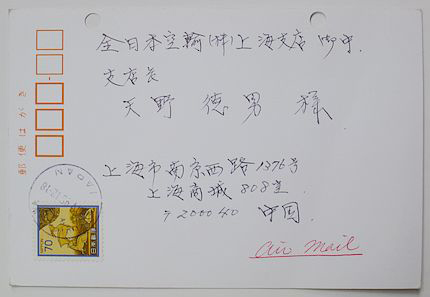 全日本空輸(株)上海支店 御中.
支店長
天野 徳男 様
上海市南京西路1376号
上海商城 808室
〒200040 中国.
Air Mail
郵便はがき
JAPAN
70
日本郵便